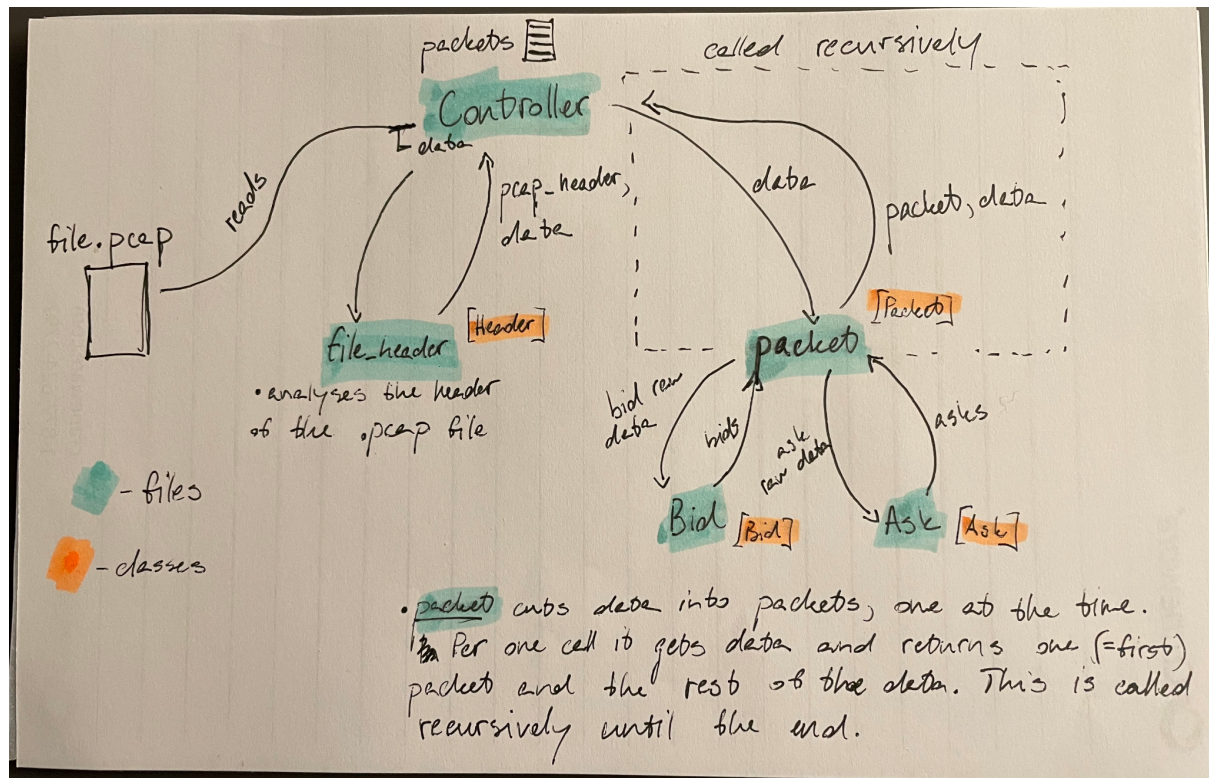 packets
called recursively
Controller
data
reads
pcap_header,
data
data
packet, data
file.pcap
[Packet]
[Header]
file_header
packet
• analyses the header
of the .pcap file
bid raw
data
bids
ask
raw data
asks
- files
Bid
[Bid]
Ask
[Ask]
- classes
• packet cuts data into packets, one at the time.
Per one call it gets data and returns one (=first)
packet and the rest of the data. This is called
recursively until the end.